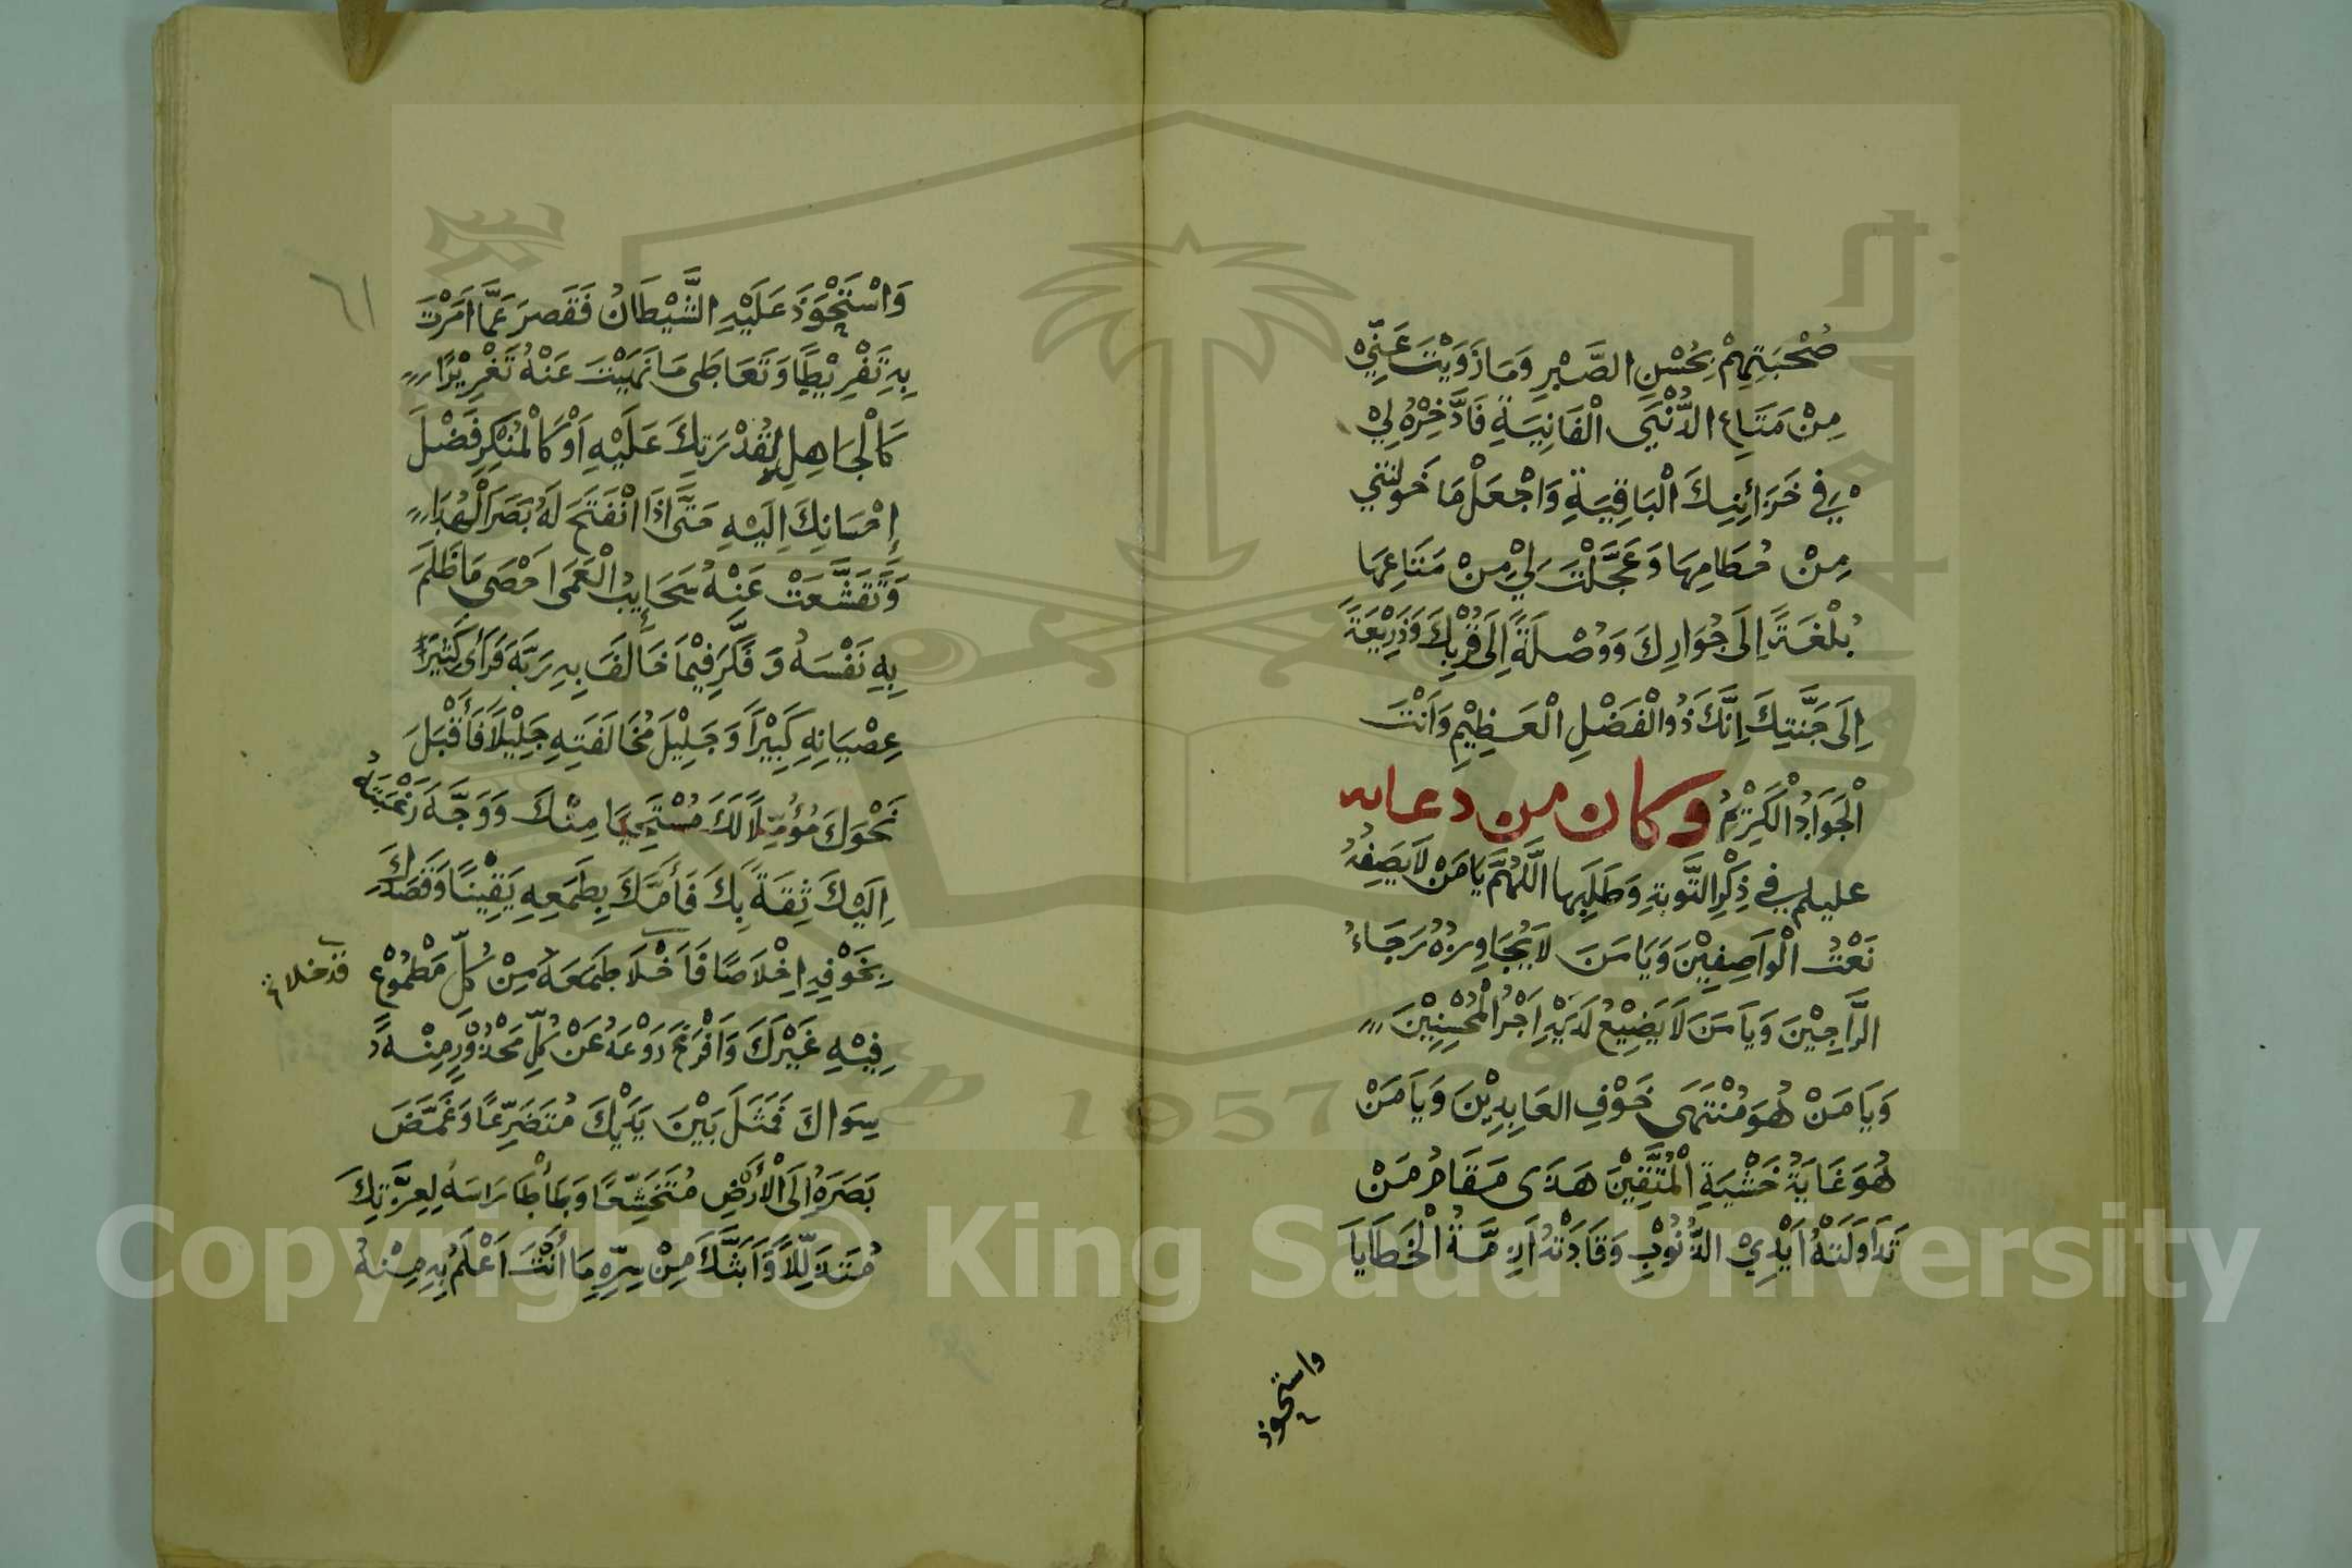 صُحْبَتِهِمْ بِحُسْنِ الصَّبْرِ وَمَا ذَوَيْتَ عَنِّيْ
مِنْ مَتَاعِ الدُّنْيَى الْفَانِيَةِ فَادَّخِرْهُ لِيْ
فِيْ خَزَائِنِكَ الْبَاقِيَةِ وَاجْعَلْ مَا خَوَلْتَنِي
مِنْ حُطَامِهَا وَعَجَّلْتَ لِيْ مِنْ مَتَاعِهَا
بُلْغَةً اِلَى جُوَارِكَ وَوُصْلَةً اِلَى قُرْبِكَ وَذَرِيْعَةً
اِلَى جَنَّتِكَ اِنَّكَ ذُو الْفَضْلِ الْعَظِيْمِ وَاَنْتَ
الْجَوَادُ الْكَرِيْمُ وكان من دعايه
عليلم في ذِكْرِ التَّوبَةِ وَطَلَبِها اللَّهُمَّ يَا مَنْ لَا يَصِفُهُ
نَعْتُ الْوَاصِفِيْنَ وَيَا مَنَ لَا يُجَاوِزُهُ رَجَاءُ
الرَّاجِيْنَ وَيَا مَنَ لَا يَضِيْعُ لَدَيْهِ اَجْرُ الْمُحْسِنِيْنَ
وَيَا مَنْ هُوَ مُنْتَهَى خَوْفِ العَابِدِيْنَ وَيَا مَنْ
هُوَ غَايَةُ خَشْيَةِ الْمُتَّقِيْنَ هَذَى مَقَامُ مَنْ
تَدَاوَلَتْهُ اَيْدِيْ الذُّنُوْبِ وَقَادَتْهُ اَزِمَّةُ الْخَطَايَا
واستحوذ
٦١
وَاسْتَحْوَذَ عَلَيْهِ الشَّيْطَانُ فَقَصرَ عَمَّا اَمَرْتَ
بِهِ تَفْرِيْطًا وَتَعَاطَى مَا نَهَيْتَ عَنْهُ تَغْرِيْرًا
كَالْجَاهِلِ بِقُدْرَتِكَ عَلَيْهِ اَوْ كَالْمُنْكِرِ فَضْلَ
اِحْسَانِكَ اِلَيْهِ حَتَّى اذَا انْفَتَحَ لَهُ بَصَرَ الْهُدَا
وَتَقَشَّعَتْ عَنْهُ سَحَايِبُ الْعَمَى احْصَى مَا ظَلَمَ
بِهِ نَفْسَهُ وَفَكَّرَ فِيْمَا خَالَفَ بِهِ رَبَّهَ فَرَأَى كَثِيْرَ
عِصْيَانِهِ كَبِيْرًا وَجَلِيْلَ مُخَالَفَتِهِ جَلِيْلًا فَأَقْبَلَ
نَحْوَكَ مُؤَمِّلًا لَكَ مُسْتَحِيًا مِنْكَ وَوَجَّهَ رَغْبَتَهُ
اِلَيْكَ ثِقَةً بِكَ فَأَمَّكَ بِطَمَعِهِ يَقِيْنًا وَقَصَدَكَ
بِخَوْفِهِ اِخْلَاصًا فَاَخْلَا طَمَعَهُ مِنْ كُلِّ مَطْمُوْعٍ
قد خلا
فِيْهِ غَيْرَكَ وَاَفْرَخَ رَوْعَهُ عَنْ كُلِّ مَحْذُوْرٍ مِنْهُ
سِوَاكَ فَمَثَلَ بَيْنَ يَدَيْكَ مُتَضَرِّعًا وَغَمَّضَ
بَصَرَهُ اِلَى الْأَرْضِ مُتَخَشِّعًا وَطَأْطَا رَاسَهُ لِعِزَّتِكَ
مُتَذَلِّلًا وَاَبَثَّكَ مِنْ سِرِّهِ مَا اَنْتَ اَعْلَمُ بِهِ مِنْهُ
1957
Copyright © King Saud University